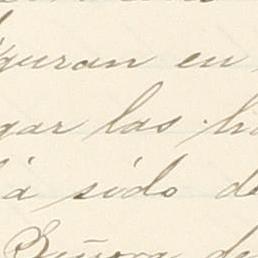 guran en
gar las h
há sido de
Señora de